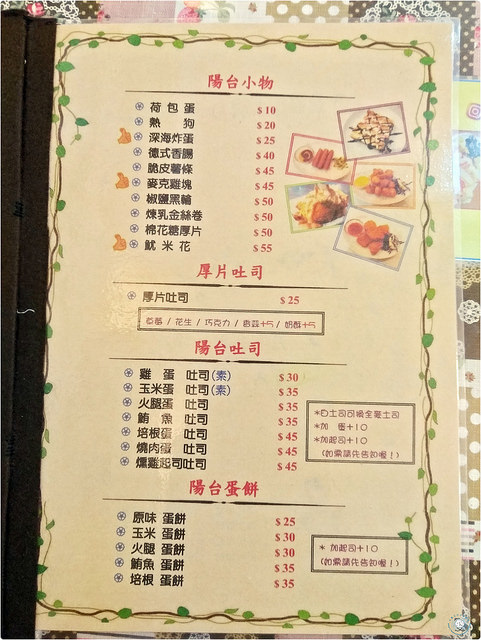 陽台小物
荷包蛋 $10
熱 狗 $20
深海炸蛋 $25
德式香腸 $40
脆皮薯條 $45
麥克雞塊 $45
椒鹽黑輪 $50
煉乳金絲卷 $50
棉花糖厚片 $50
魷米花 $55
厚片吐司
厚片吐司 $25
草莓 / 花生 / 巧克力 / 香蒜+5 / 奶酥+5
陽台吐司
雞 蛋 吐司(素) $30
玉米蛋 吐司(素) $35
火腿蛋 吐司 $35
鮪 魚 吐司 $35
培根蛋 吐司 $45
燒肉蛋 吐司 $45
燻雞起司吐司 $45
*白土司可換全麥土司
*加 蛋+10
*加起司+10
(如需請先告知喔!)
陽台蛋餅
原味 蛋餅 $25
玉米 蛋餅 $30
火腿 蛋餅 $30
鮪魚 蛋餅 $35
培根 蛋餅 $35
* 加起司+10
(如需請先告知喔!)